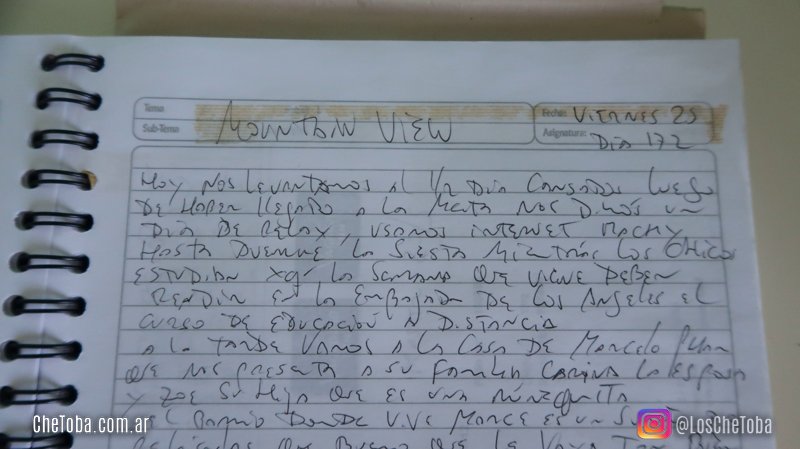 Tema
MOUNTAIN VIEW
Fecha: VIERNES 25
Sub-Tema
Asignatura: DIA 172
HOY NOS LEVANTAMOS AL 1/2 DIA CANSADOS LUEGO
DE HABER LLEGADO A LA META NOS DIMOS UN
DIA DE RELAX, USAMOS INTERNET MACHY
HASTA DUERME LA SIESTA MIENTRAS LOS CHICOS
ESTUDIAN XQ LA SEMANA QUE VIENE DEBEN
RENDIR EN LA EMBAJADA DE LOS ANGELES EL
CURSO DE EDUCACION A DISTANCIA
A LA TARDE VAMOS A LA CASA DE MARCELO
QUE NOS PRESENTA A SU FAMILIA CARINA LA ESPOSA
Y ZOE SU HIJA QUE ES UNA MUÑEQUITA
EL BARRIO DONDE VIVE MARCE ES UN
QUE BUENO QUE LE VAYA TAN BIEN
CheToba.com.ar
@LosCheToba